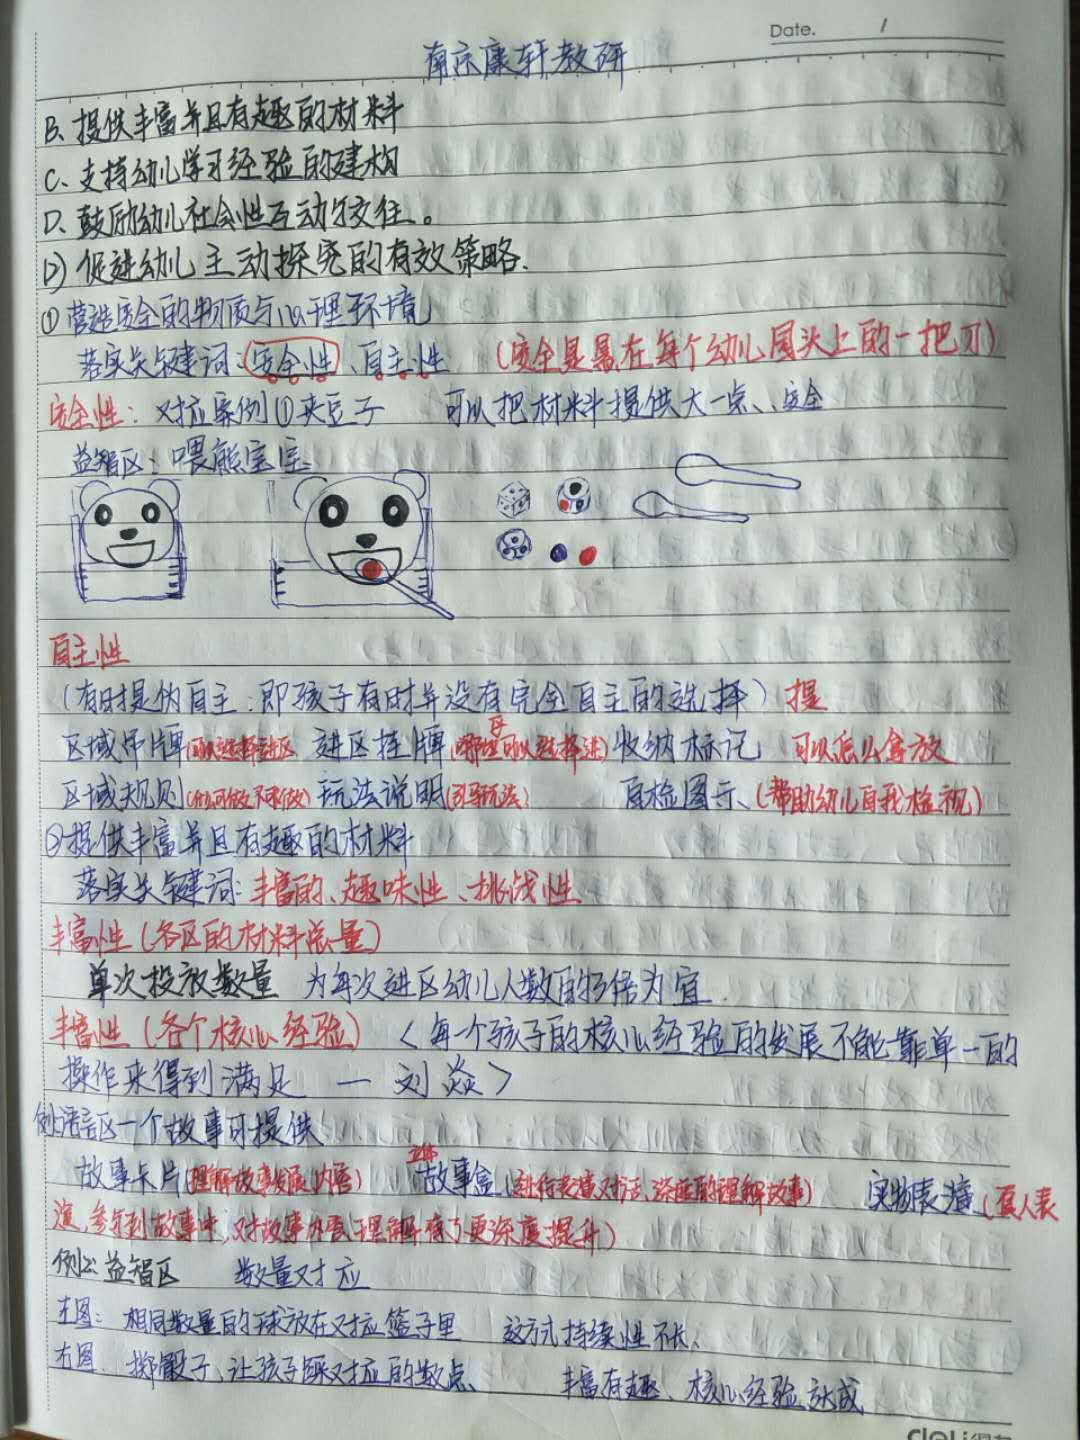 Date. 1
南京康轩教研
B、提供丰富并且有趣的材料
C、支持幼儿学习经验的建构
D、鼓励幼儿社会性互动与交往。
(2) 促进幼儿主动探究的有效策略.
①营造安全的物质与心理环境
落实关键词:安全性、自主性 (安全是悬在每个幼儿园头上的一把刀)
安全性: 对应案例①夹豆子 可以把材料提供大一点、安全
益智区:喂熊宝宝
自主性
(有时是伪自主:即孩子有时并没有完全自主的选择) 提
区域吊牌(可以选择进区 进区挂牌(哪些区可以选择进) 收纳标记 可以怎么拿放
区域规则(什么可做不可做) 玩法说明(引导玩法) 自检图示、(帮助幼儿自我检视)
②提供丰富并且有趣的材料
落实关键词:丰富的、趣味性、挑战性
丰富性(各区的材料总量)
单次投放数量 为每次进区幼儿人数的3倍为宜.
丰富性(各个核心经验) <每一个孩子的核心经验的发展不能靠单一的
操作来得到满足 — 刘焱>
例1:语言区一个故事可提供
故事卡片(理解故事发展、内容) 立体故事盒(进行表演对话、深度的理解故事) 实物表演(真人表
演,参与到故事中,对故事的理解有了更深度提升)
例2:益智区 数量对应
左图: 相同数量的球放在对应篮子里 这方式持续性不长、
右图. 掷骰子,让孩子踩对应的数点、 丰富有趣、核心经验达成
deli得力